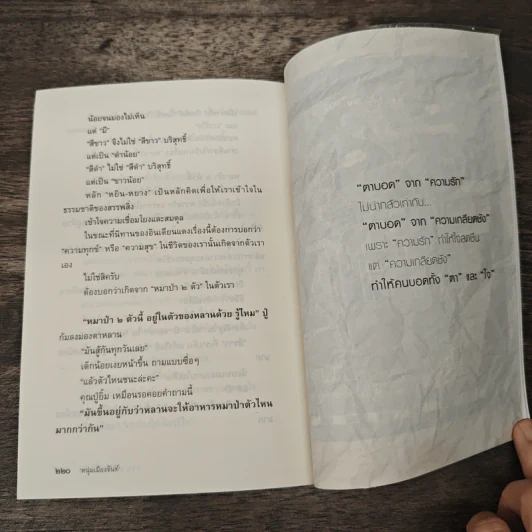 น้อยจนมองไม่เห็น
แต่ "มี"
"สีขาว" จึงไม่ใช่ "สีขาว" บริสุทธิ์
แต่เป็น "ดำน้อย"
"สีดำ" ไม่ใช่ "สีดำ" บริสุทธิ์
แต่เป็น "ขาวน้อย"
หลัก "หยิน-หยาง" เป็นหลักคิดเพื่อให้เราเข้าใจใน
ธรรมชาติของสรรพสิ่ง
เข้าใจความเชื่อมโยงและสมดุล
ในขณะที่นิทานของอินเดียนแดงเรื่องนี้ต้องการบอกว่า
"ความทุกข์" หรือ "ความสุข" ในชีวิตของเรานั้นเกิดจากตัวเรา
เอง
ไม่ใช่สิครับ
ต้องบอกว่าเกิดจาก "หมาป่า ๒ ตัว" ในตัวเรา
"หมาป่า ๒ ตัวนี้ อยู่ในตัวของหลานด้วย รู้ไหม" ปู่
ก้มลงมองตาหลาน
"มันสู้กันทุกวันเลย"
เด็กน้อยเงยหน้าขึ้น ถามแบบซื่อๆ
"แล้วตัวไหนชนะล่ะคะ"
คุณปู่ยิ้ม เหมือนรอคอยคำถามนี้
"มันขึ้นอยู่กับว่าหลานจะให้อาหารหมาป่าตัวไหน
มากกว่ากัน"
๒๒๐ หนุ่มเมืองจันท์
"ตาบอด" จาก "ความรัก"
ไม่น่ากลัวเท่ากับ...
"ตาบอด" จาก "ความเกลียดชัง"
เพราะ "ความรัก" ทำให้ใจสดชื่น
แต่ "ความเกลียดชัง"
ทำให้คนบอดทั้ง "ตา" และ "ใจ"